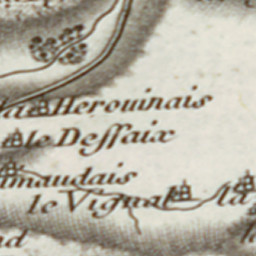 la Herouinais
le Deſſaix
imaudais
le Vignal la
nd la